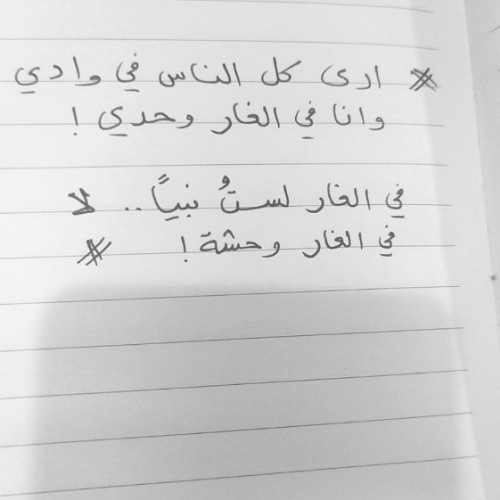 * ارى كل الناس في وادي
وانا في الغار وحدي !
في الغار لستُ نبياً .. لا
في الغار وحشة ! *